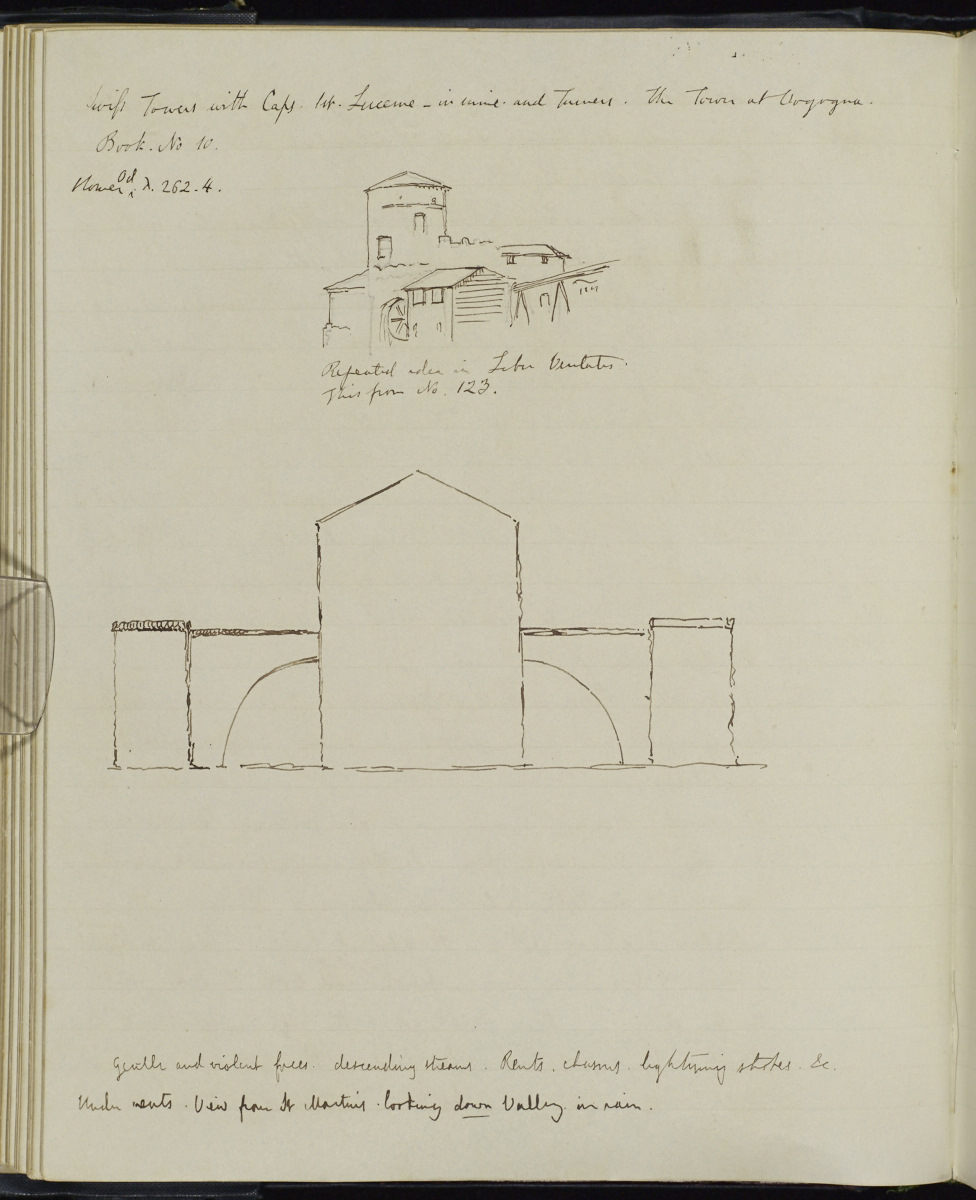 Swiss Towers with Caps. 1st. Lucerne - in mine. and Turners. The Town at Vogogna.
Book. No 10.
Homer Od. λ. 262.4.
Repeated idea in Liber Veritatis.
This from No. 123.
Gentle and violent forces. descending streams. Rents. chasms. lightning strokes. &c.
Under rents. View from St Martins. looking down Valley. in rain.